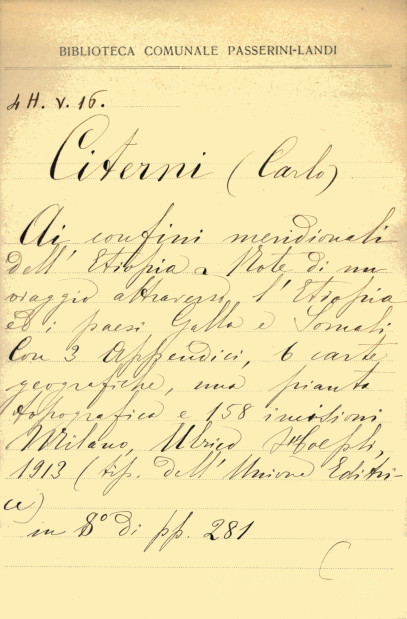 BIBLIOTECA COMUNALE PASSERINI-LANDI
4 H. V. 16.
Citerni (Carlo)
Ai confini meridionali
dell' Etiopia - Note di un
viaggio attraverso l' Etiopia
ed i paesi Galla e Somali
Con 3 Appendici, 6 carte
geografiche, una pianta
topografica e 158 incisioni
Milano, Ulrico Hoepli,
1913 (tip. dell' Unione Editri-
ce)
in 8° di pp. 281